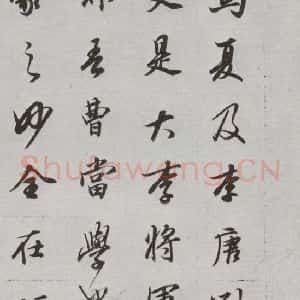 馬夏及李唐劉
又是大李將軍
非吾曹當學
之妙全在
Shufawang.CN